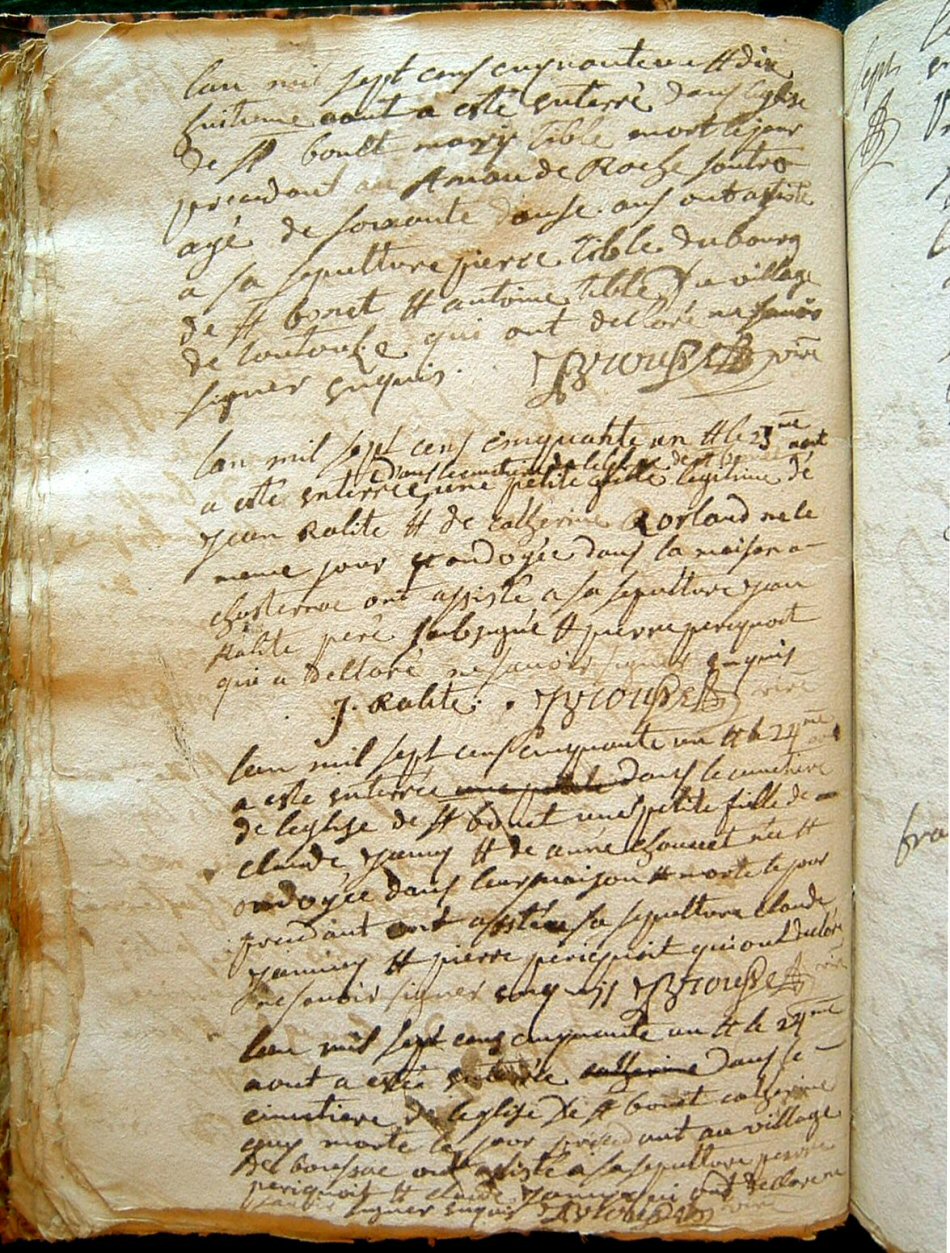 lan mil sept cens cinquante un & dix
huitieme aout a esté enterré dans leglise
de st bonit marys tible mort le jour
precedant au de Roche soutro
agé de soixante douse ans ont assisté
a sa sepulture pierre tible du bourg
de st bonet & antoine tible du village
de qui ont declaré ne savoir
signer enquis. Brousse vire
lan mil sept cens cinquante un & le 23me aout
dans le cimetiere de leglise de st bonet
a esté enterrée une petite fille legitime dé
jean Ralite & de catherine Rorland née le
meme jour & ondoyée dans la maison a
chasternac ont assisté a sa sepulture jean
Ralite peré soubsigné & pierre periquoit
qui a declaré ne savoir signer enquis
J. Ralite. Brousse vire
lan mil sept cens cinquante un & le 24me aout
a esté enterrée une petite dans le cimetiere
de leglise de st bonet une petite fille de
claude jamy & de anne chouvet née &
ondoyée dans leur maison & morte le jour
precedant ont assisté a sa sepulture claude
& pierre periquoit qui ont declaré
ne savoir signer enquis Brousse vire
lan mil sept cens cinquante un & le 24me
aout a esté enterrée catherine dans le
cimetiere de leglise de st bonet catherine
morte le jour precedant au village
de boussac ont assisté a sa sepulture pierre
periquoit & claude qui ont declaré ne
savoir signer enquis Brousse vire